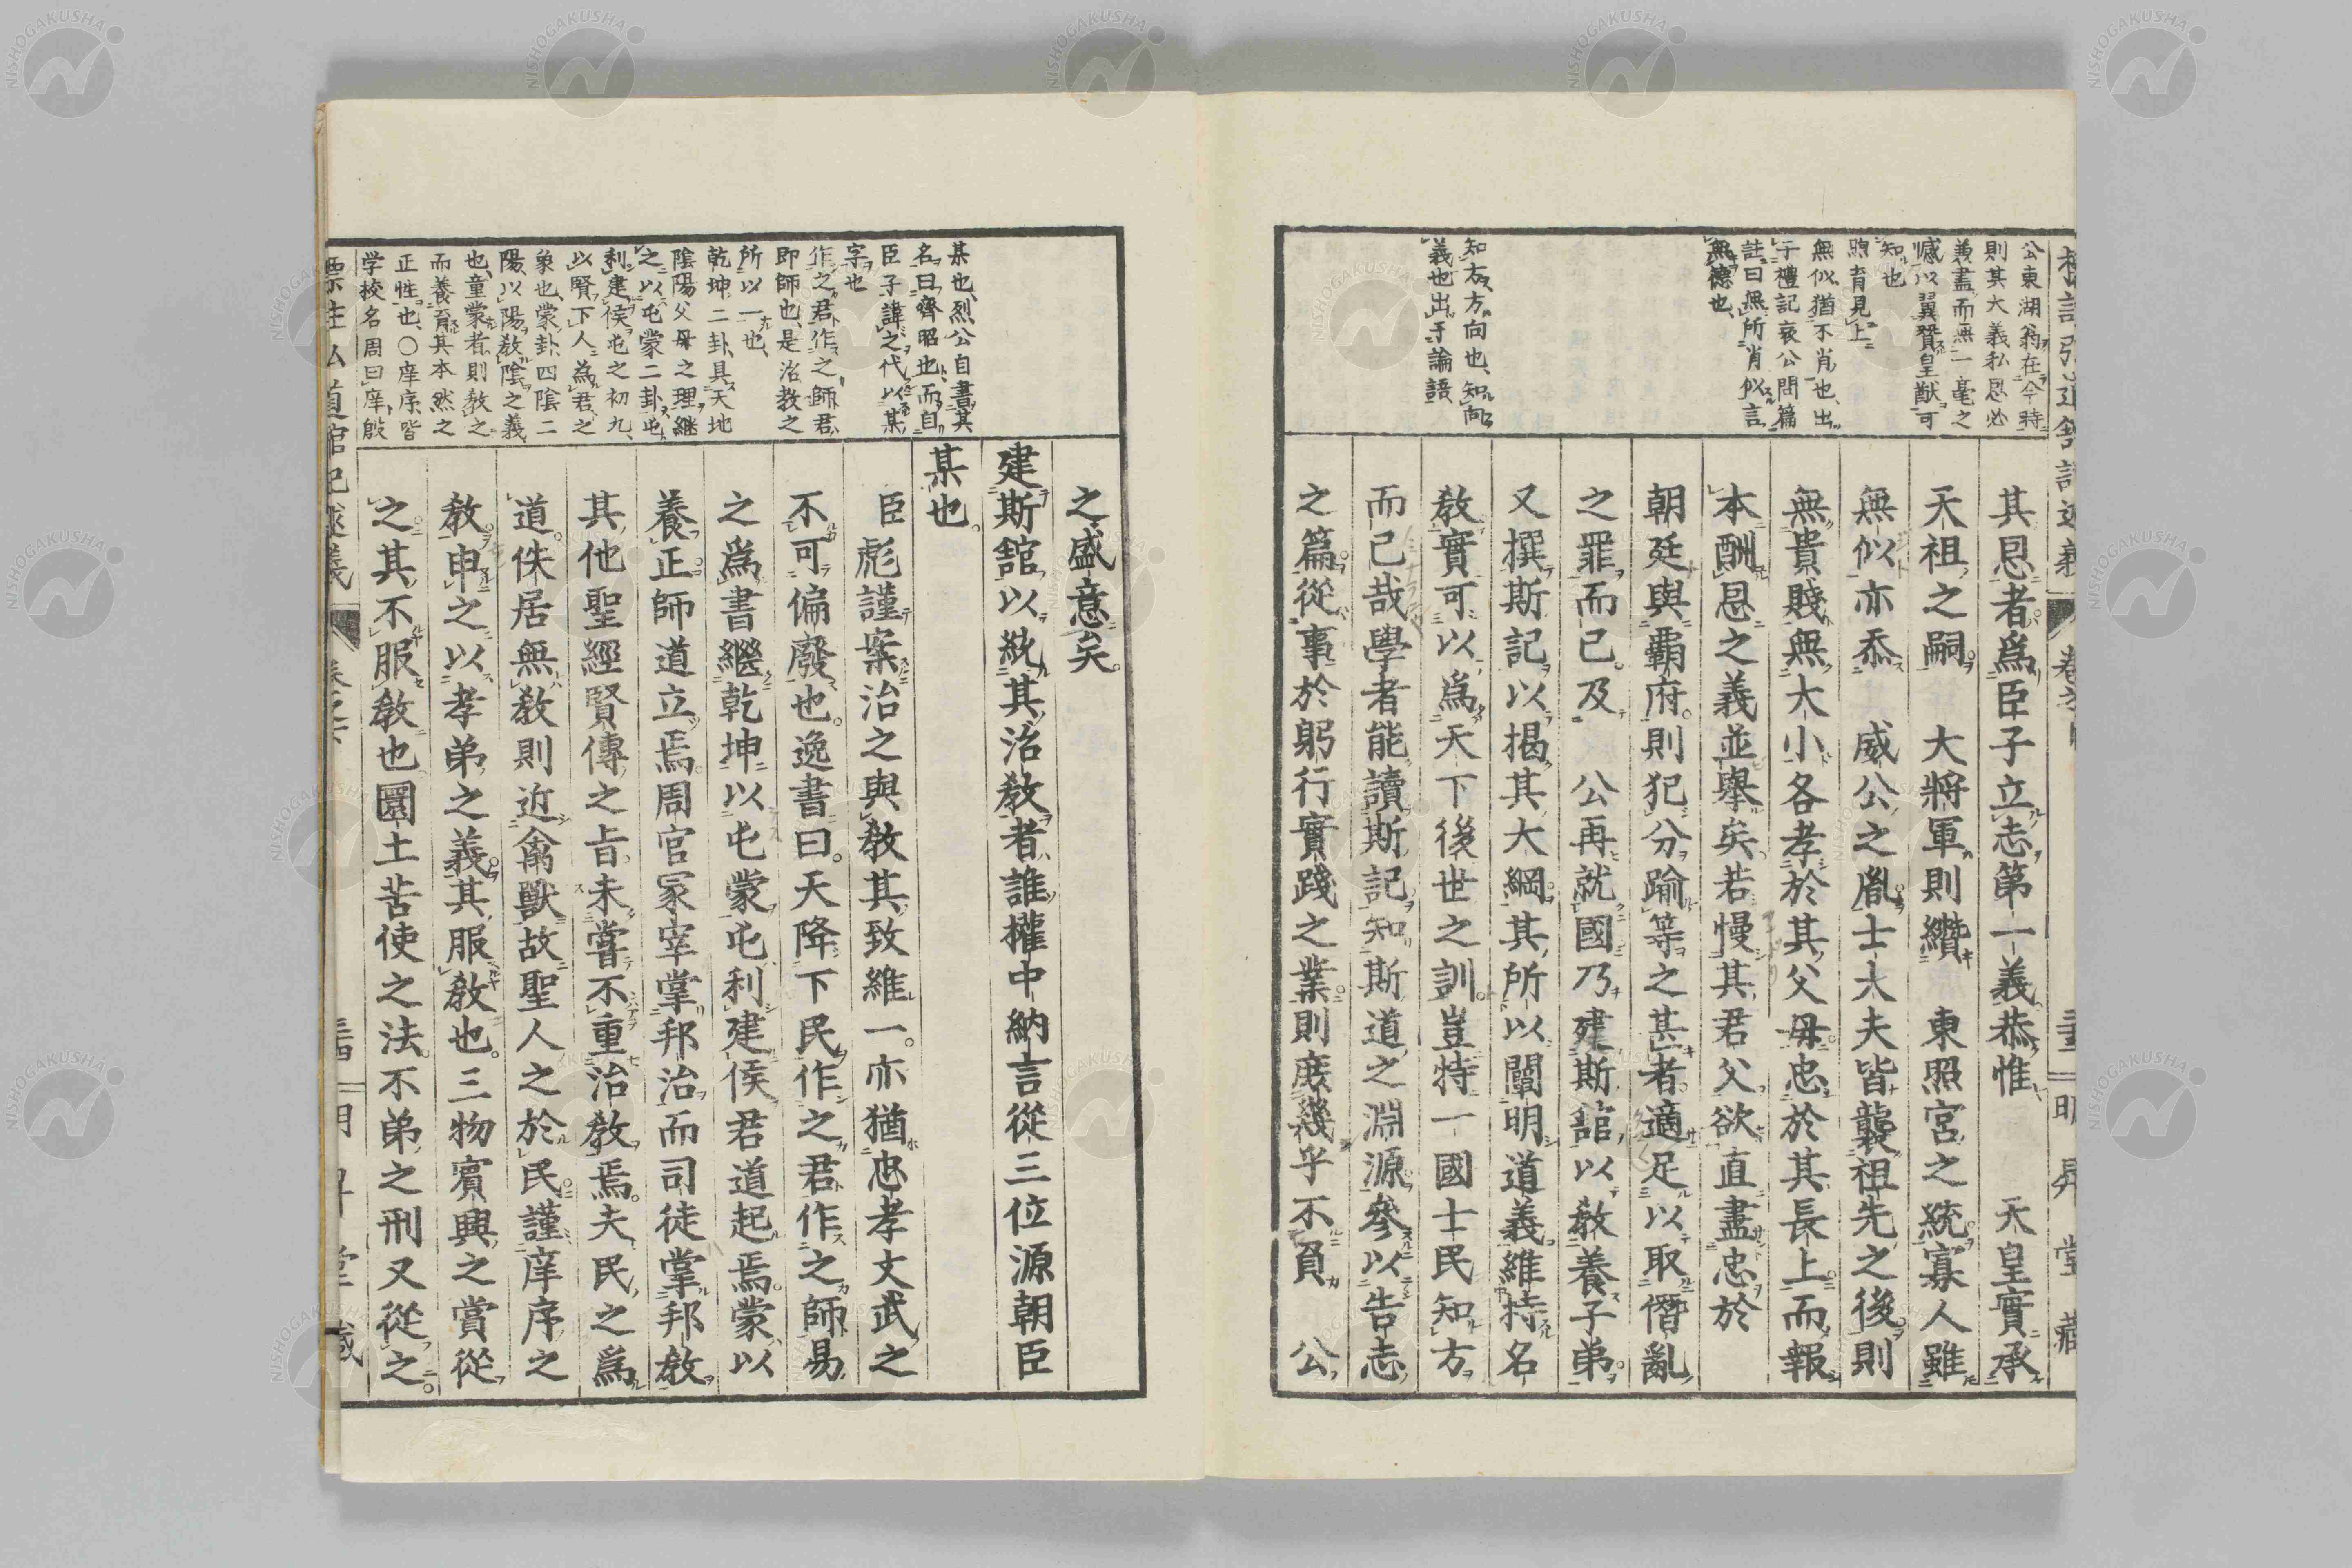 公東湖翁在今時
則其大義私恩必
義盡而無一毫之
憾以翼賛皇猷可
知也
煦育見上
無似猶不肖也出
于禮記哀公問篇
註曰無所肖似言
無德也
知方方向也知向
義也出于論語
其恩者爲臣子立志第一義恭惟　天皇實承
天祖之嗣　大將軍則纘　東照宮之統寡人雖
無似亦忝　威公之胤士大夫皆襲祖先之後則
無貴賤無大小各孝於其父母忠於其長上而報
本酬恩之義並擧矣若慢其君父欲直盡忠於
朝廷與覇府則犯分踰等之甚者適足以取僭亂
之罪而已及　公再就國乃建斯舘以敎養子弟
又撰斯記以揭其大綱其所以闡明道義維持名
敎實可以爲天下後世之訓豈特一國士民知方
而已哉學者能讀斯記知斯道之淵源參以告志
之篇從事於躬行實踐之業則庶幾乎不負　公
某也烈公自書其
名曰齊昭也而自
臣子諱之代以某
字也
作之君作之師君
即師也是治敎之
所以一也
乾坤二卦具天地
陰陽父母之理継
之以屯蒙二卦屯
利建侯屯之初九
以賢下人為君之
象也蒙卦四陰二
陽以陽敎陰之義
也童蒙者則敎之
而養育其本然之
正性也〇庠序皆
学校名周曰庠殷
之盛意矣
建斯舘以統其治敎者誰權中納言從三位源朝臣
某也
臣彪謹案治之與敎其致維一亦猶忠孝文武之
不可偏廢也逸書曰天降下民作之君作之師易
之爲書繼乾坤以屯蒙屯利建侯君道起焉蒙以
養正師道立焉周官冢宰掌邦治而司徒掌邦敎
其他聖經賢傳之旨未嘗不重治敎焉夫民之爲
道佚居無敎則近禽獸故聖人之於民謹庠序之
敎申之以孝弟之義其服敎也三物賓興之賞從
之其不服敎也圜土苦使之法不弟之刑又從之